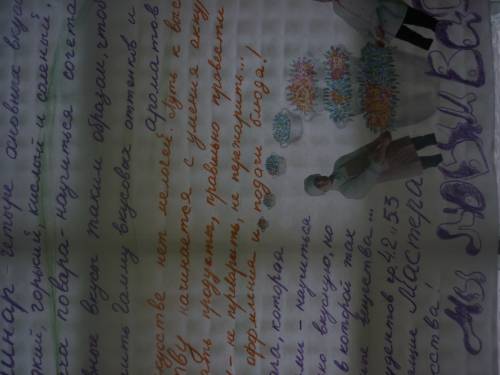 линар - четыре основных вкуса
дкий, горький, кислый и соленый,
ча повара - научиться сочета
вные вкусы таким образом, чтоб
ить гамму вкусовых оттенков и
ароматов
усстве нет мелочей. Путь к выс
тву начинается с умения акку
ать продукты, правильно провести
- не переварить, не пережарить...
оформления и подачи блюда!
ола, которая
ми - научиться
ко вкусную, но
в которой так
ные вещества...
удентов гр. 4.2 53
ющие Мастера
сства!